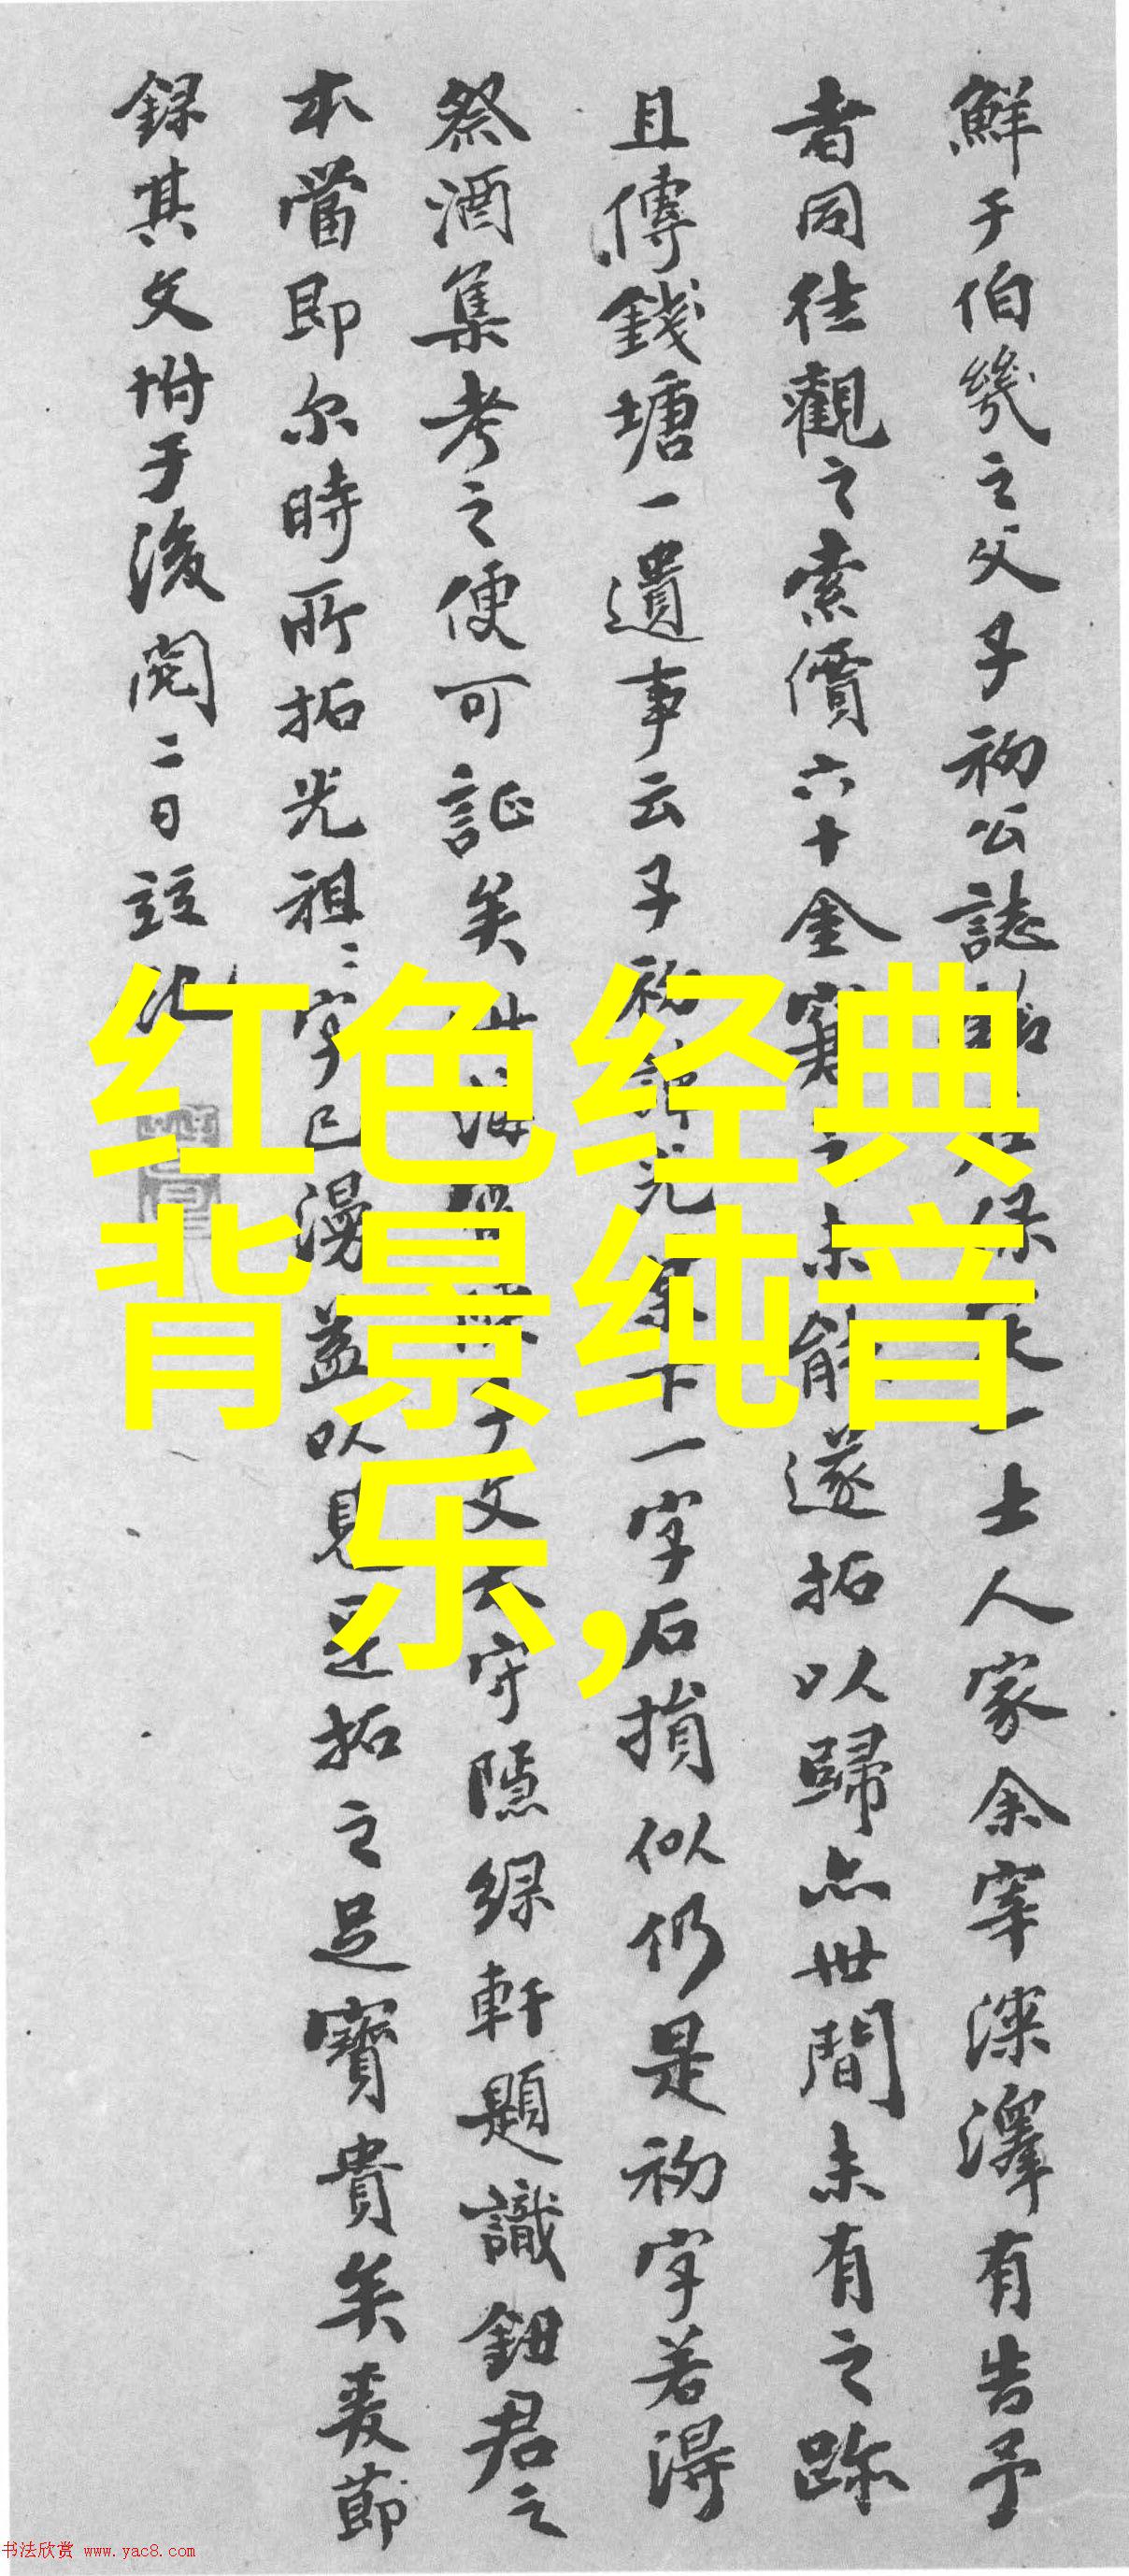 鮮于伯幾之父子初公誌
士人家余宰溧澤有告予
者同往觀之索價六十金
未能遂拓以歸亦世間未有之跡
且傳錢塘一遺事云子初
一字石損似仍是初字若得
祭酒集考之便可証矣
文太守隱綠軒題識鈕君之
本當即尔時所拓光祖二字已漫益以見
近拓之足寶貴矣爰節
錄其文坿于後閱二日
红色经典
背景纯音
乐,
书法欣赏 www.yac8.com